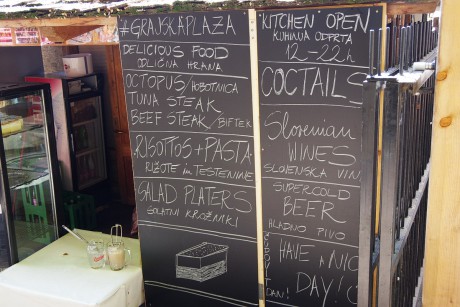 #GRAJSKAPLAZA
DELICIOUS FOOD
ODLIČNA HRANA
OCTOPUS/HOBOTNICA
TUNA STEAK
BEEF STEAK/BIFTEK
RISOTTOS+PASTA
RIŽOTE in TESTENINE
SALAD PLATERS
SOLATNI KROŽNIKI
KITCHEN OPEN
KUHINJA ODPRTA
12-22h
COCTAILS
Slovenian
WINES
SLOVENSKA VINA
SUPERCOLD
BEER
HLADNO PIVO
HAVE a NICE
DAY!
DAN!